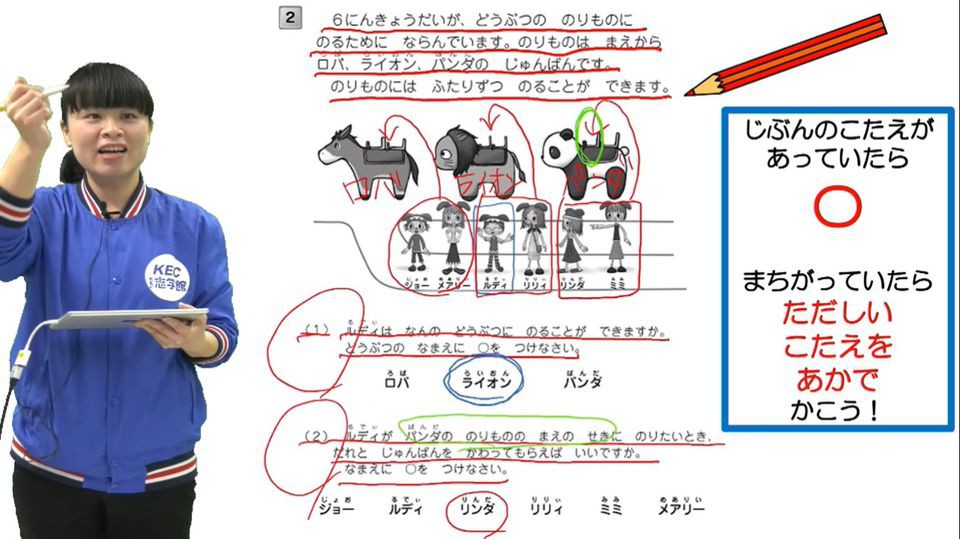 2
6にんきょうだいが、どうぶつの のりものに
のるために ならんでいます。のりものは まえから
ロバ、ライオン、パンダの じゅんばんです。
のりものには ふたりずつ のることが できます。
ロバ ライオン パンダ
じょお めありい るでぃ りりぃ りんだ みみ
ジョー メアリー ルディ リリィ リンダ ミミ
るでぃ
(1) ルディは なんの どうぶつに のることが できますか。
どうぶつの なまえに ○を つけなさい。
ろば らいおん ぱんだ
ロバ ライオン パンダ
るでぃ ぱんだ
(2) ルディが パンダの のりものの まえの せきに のりたいとき、
だれと じゅんばんを かわってもらえば いいですか。
なまえに ○を つけなさい。
じょお るでぃ りんだ りりぃ みみ めありい
ジョー ルディ リンダ リリィ ミミ メアリー
じぶんのこたえが
あっていたら
○
まちがっていたら
ただしい
こたえを
あかで
かこう!
KEC
志学館